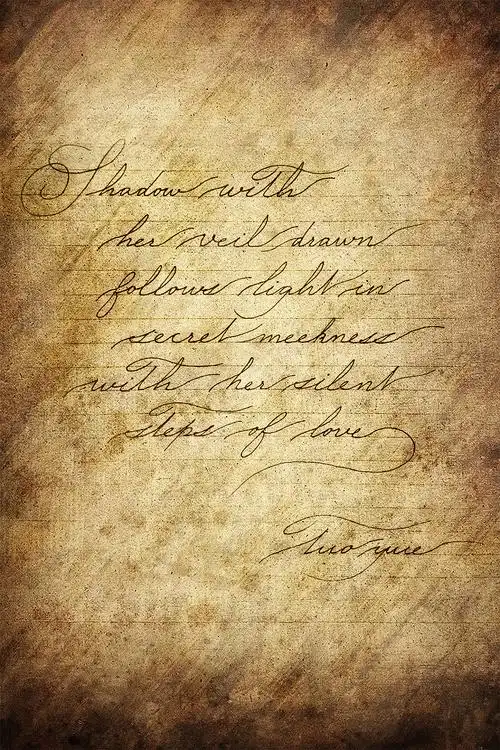 Shadow with
her veil drawn
follows light in
secret meekness
with her silent
steps of love